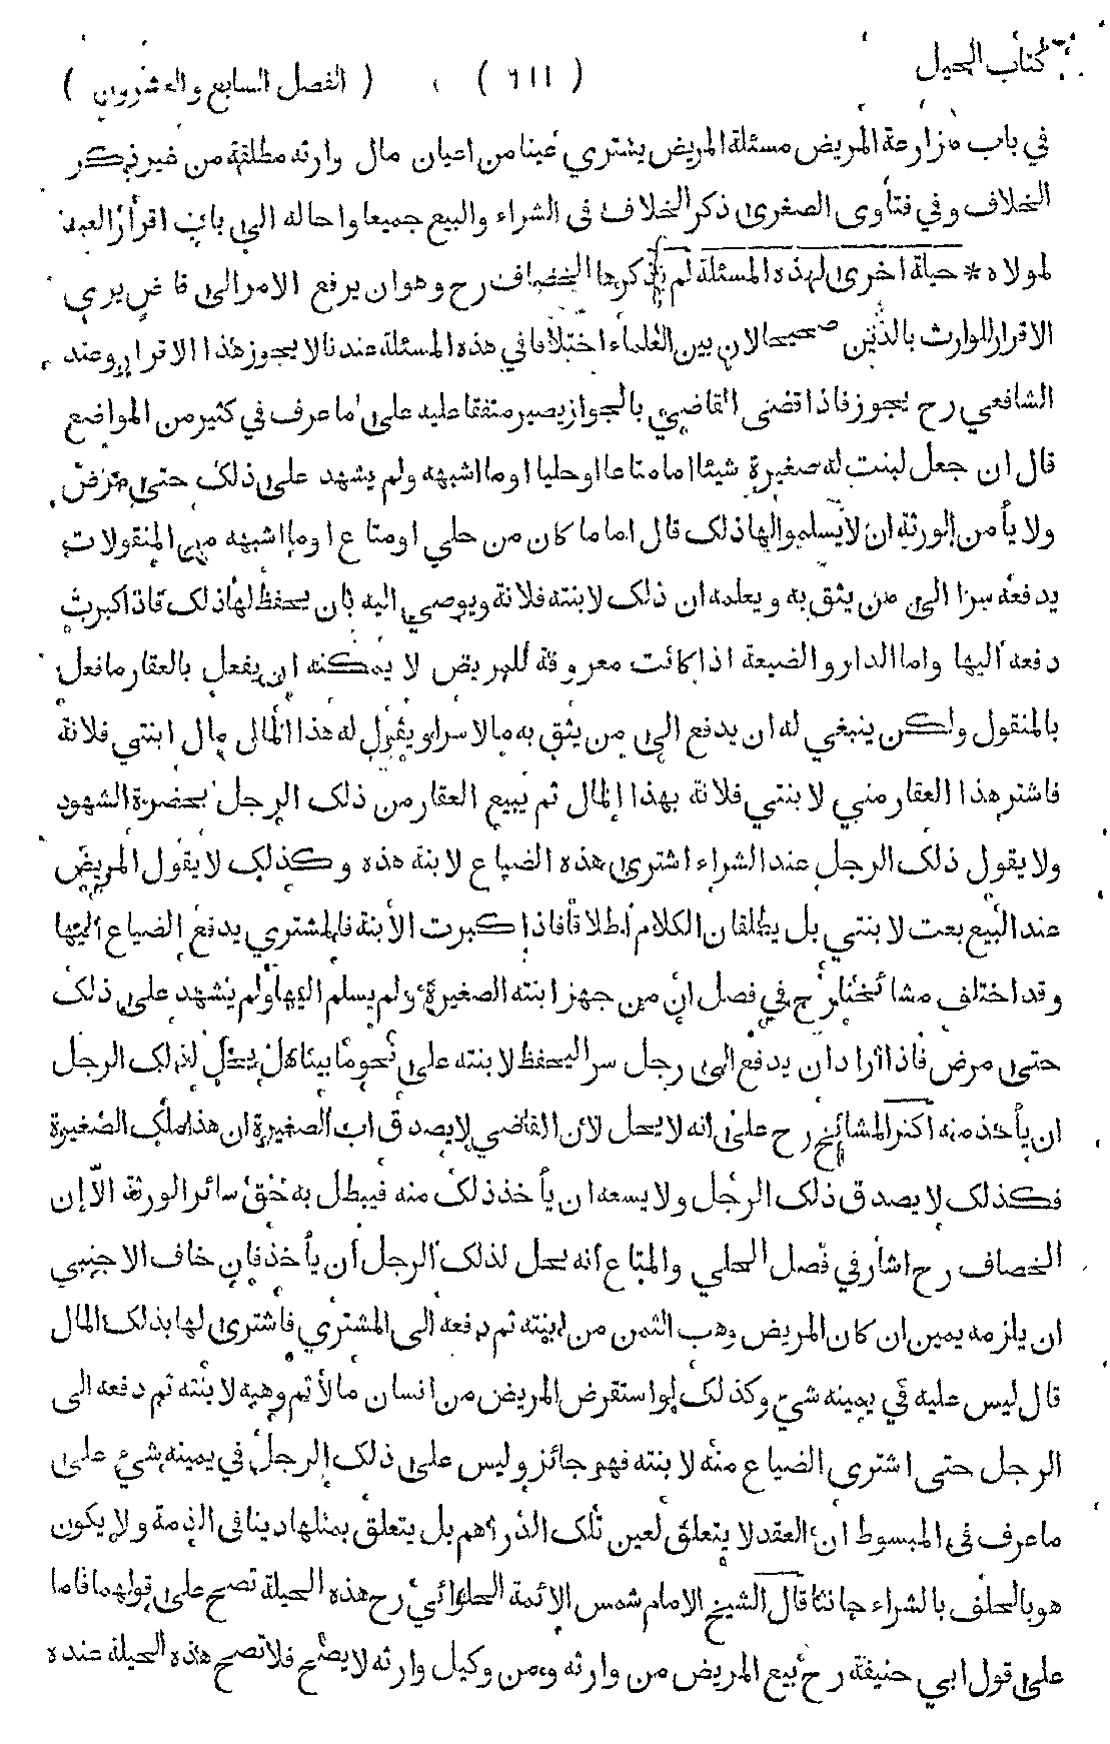 كتاب الحيل
( ٦١١ )
( الفصل السابع والعشرون )
في باب مزارعة المريض مسئلة المريض يشتري عينا من اعيان مال وارثه مطلقة من غير ذكر
الخلاف وفي فتاوى الصغرى ذكر الخلاف في الشراء والبيع جميعا واحاله الى باب اقرار العبد
لمولاه * حيلة اخرى لهذه المسئلة لم يذكرها الخصاف رح وهو ان يرفع الامر الى قاض يرى
الاقرار للوارث بالدين صحيحا لان بين العلماء اختلافا في هذه المسئلة عندنا لا يجوز هذا الاقرار وعند
الشافعي رح يجوز فاذا قضى القاضي بالجواز يصير متفقا عليه على ما عرف في كثير من المواضع
قال ان جعل لبنت له صغيرة شيئا اما متاعا او حليا او ما اشبهه ولم يشهد على ذلك حتى مرض
ولا يأمن الورثة ان لا يسلموا لها ذلك قال اما ما كان من حلي او متاع او ما اشبهه من المنقولات
يدفعه سرا الى من يثق به ويعلمه ان ذلك لابنته فلانة ويوصي اليه بان يحفظ لها ذلك فاذا كبرت
دفعه اليها واما الدار والضيعة اذا كانت معروفة للمريض لا يمكنه ان يفعل بالعقار ما فعل
بالمنقول ولكن ينبغي له ان يدفع الى من يثق به مالا سرا ويقول له هذا المال مال ابنتي فلانة
فاشتر هذا العقار مني لابنتي فلانة بهذا المال ثم يبيع العقار من ذلك الرجل بحضرة الشهود
ولا يقول ذلك الرجل عند الشراء اشترى هذه الضياع لابنة هذه وكذلك لا يقول المريض
عند البيع بعت لابنتي بل يطلقان الكلام اطلاقا فاذا كبرت الابنة فالمشتري يدفع الضياع اليها
وقد اختلف مشائخنا رح في فصل ان من جهز ابنته الصغيرة ولم يسلم اليها ولم يشهد على ذلك
حتى مرض فاذا اراد ان يدفع الى رجل سرا ليحفظ لابنته على نحو ما بينا هل يحل لذلك الرجل
ان يأخذ منه اكثر المشائخ رح على انه لا يحل لان القاضي لا يصدق اب الصغيرة ان هذا ملك الصغيرة
فكذلك لا يصدق ذلك الرجل ولا يسعه ان يأخذ ذلك منه فيبطل به حق سائر الورثة الّا ان
الخصاف رح اشار في فصل الحلي والمتاع انه يحل لذلك الرجل ان يأخذ فان خاف الاجنبي
ان يلزمه يمين ان كان المريض وهب الثمن من ابنته ثم دفعه الى المشتري فاشترى لها بذلك المال
قال ليس عليه في يمينه شيء وكذلك لو استقرض المريض من انسان مالا ثم وهبه لابنته ثم دفعه الى
الرجل حتى اشترى الضياع منه لابنته فهو جائز وليس على ذلك الرجل في يمينه شيء على
ما عرف في المبسوط ان العقد لا يتعلق لعين تلك الدراهم بل يتعلق بمثلها دينا في الذمة ولا يكون
هو بالحلف بالشراء حانثا قال الشيخ الامام شمس الائمة الحلوائي رح هذه الحيلة تصح على قولهما فاما
على قول ابي حنيفة رح بيع المريض من وارثه ومن وكيل وارثه لا يصح فلا تصح هذه الحيلة عنده